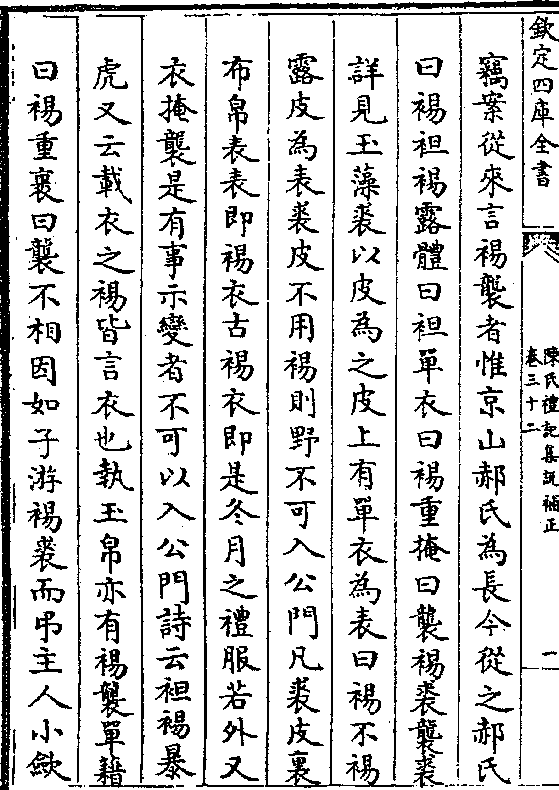 欽定四庫全書
陳氏禮記集說補正
卷三十二
一
竊案從來言裼襲者惟京山郝氏為長今從之郝氏
曰裼袒裼露體曰袒單衣曰裼重掩曰襲裼裘襲裘
詳見玉藻裘以皮為之皮上有單衣為表曰裼不裼
露皮為表裘皮不用裼則野不可入公門凡裘皮裏
布帛表表即裼衣古裼衣即是冬月之禮服若外又
衣掩襲是有事示變者不可以入公門詩云袒裼暴
虎又云載衣之裼皆言衣也執玉帛亦有裼襲單藉
曰裼重裹曰襲不相因如子游裼裘而弔主人小斂